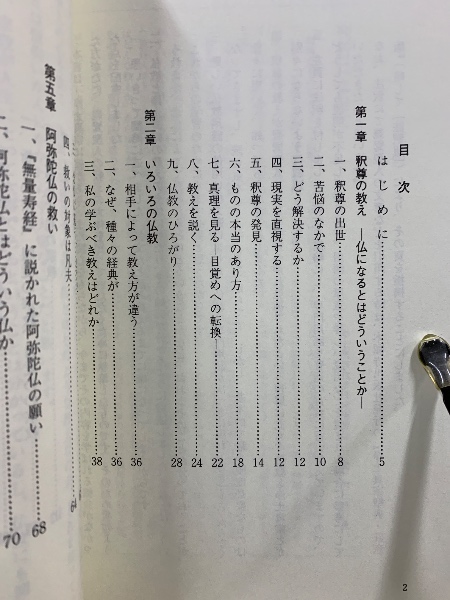 目次
はじめに……5
第一章 釈尊の教え ―仏になるとはどういうことか―
一、釈尊の出世……8
二、苦悩のなかで……10
三、どう解決するか……12
四、現実を直視する……12
五、釈尊の発見……14
六、ものの本当のあり方……18
七、真理を見る――目覚めへの転換……22
八、教えを説く……24
九、仏教のひろがり……28
第二章 いろいろの仏教
一、相手によって教え方が違う……36
二、なぜ、種々の経典が……36
三、私の学ぶべき教えはどれか……38
2
四、救いの対象は凡夫……64
第五章 阿弥陀仏の救い
一、『無量寿経』に説かれた阿弥陀仏の願い……68
二、阿弥陀仏とはどういう仏か……70